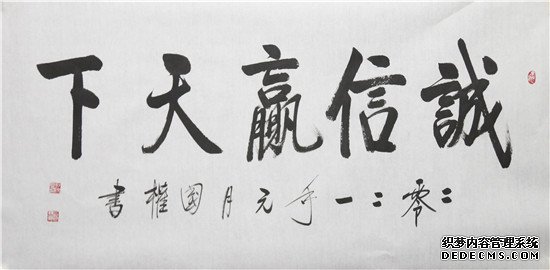 誠信贏天下
二零二一年元月國權書
织梦内容管理系统
DEDECMS.COM